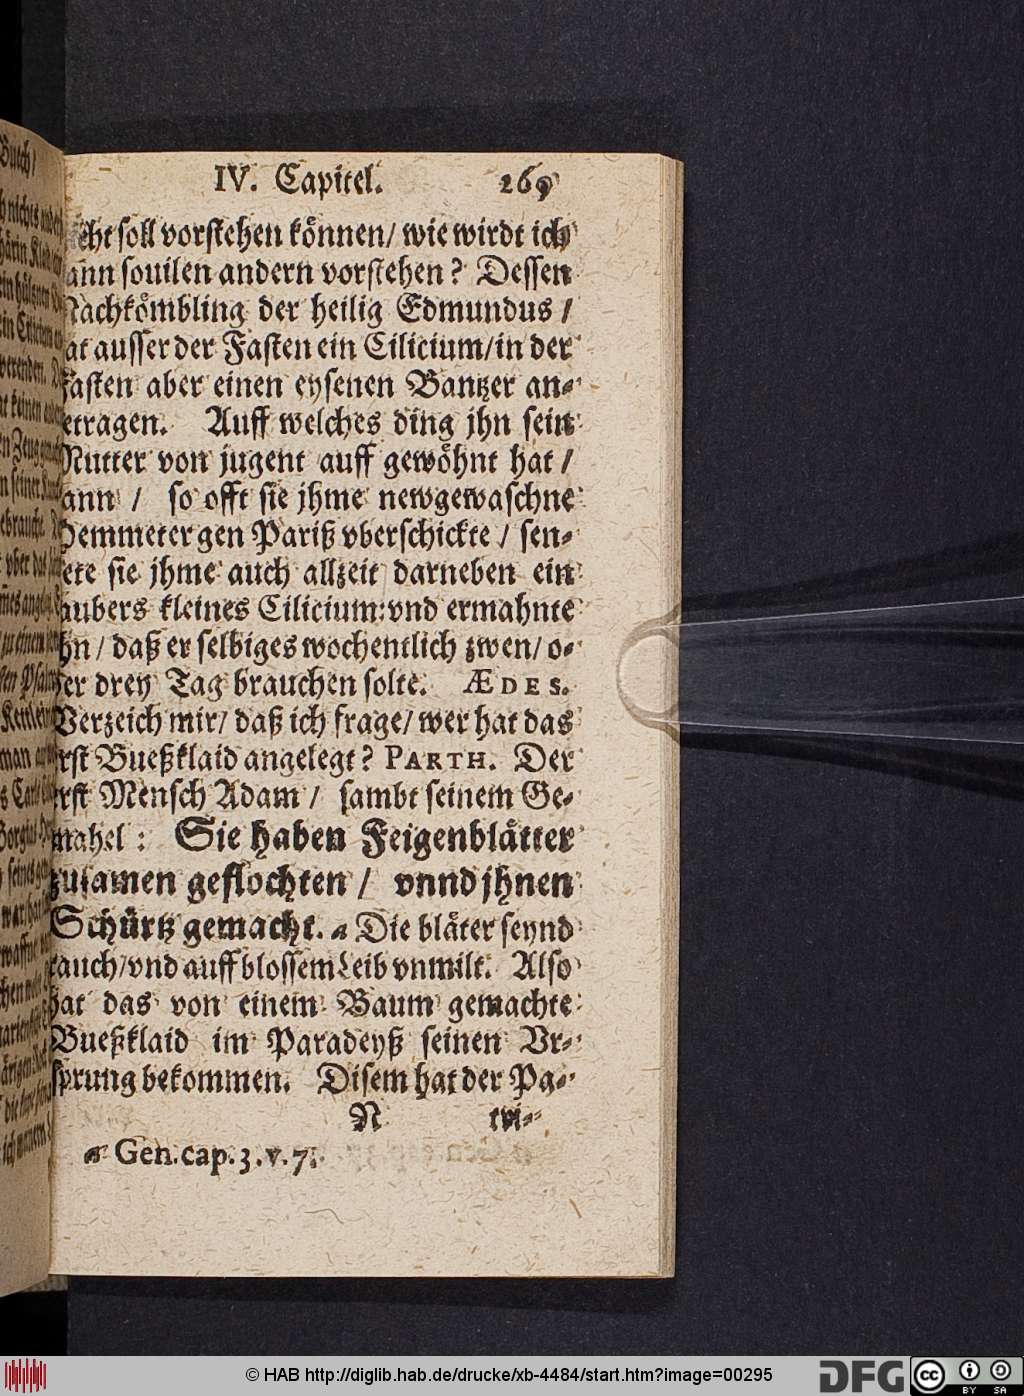 IV. Capitel. 269
eht soll vorstehen können/ wie wirdt ich
ann souilen andern vorstehen? Dessen
Nachkömbling der heilig Edmundus /
at ausser der Fasten ein Cilicium/in der
Fasten aber einen eysenen Bantzer an-
etragen. Auff welches ding jhn sein
Mutter von jugent auff gewöhnt hat /
ann / so offt sie jhme newgewaschne
Hemmeter gen Pariß vberschickte / sen-
ete sie jhme auch allzeit darneben ein
aubers kleines Cilicium: vnd ermahnte
hn / daß er selbiges wochentlich zwen/ o-
er drey Tag brauchen solte. ÆDES.
Verzeich mir/ daß ich frage/ wer hat das
rst Bueßklaid angelegt? PARTH. Der
rst Mensch Adam / sambt seinem Ge-
mahel : Sie haben Feigenblätter
zusamen geflochten / vnnd jhnen
Schürtz gemacht. a Die bläter seynd
rauch/vnd auff blossem Leib vnmilt. Also
hat das von einem Baum gemachte
Bueßklaid im Paradeyß seinen Vr-
sprung bekommen. Disem hat der Pa-
N tri-
a Gen.cap.3.v.7.
© HAB http://diglib.hab.de/drucke/xb-4484/start.htm?image=00295
DFG
cc BY SA